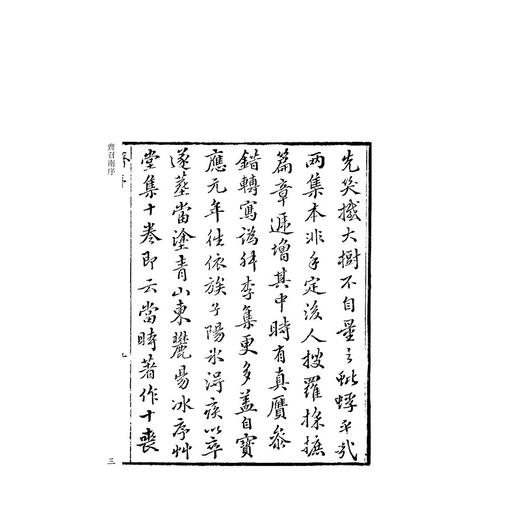 先笑撼大樹不自量之蚍蜉乎哉
两集本非手定後人搜羅採摭
篇章遞增其中時有真贋叅
錯轉寫譌舛李集更多蓋自寶
應元年往依族子陽氷得疾以卒
遂葬當塗青山東麓陽冰序艸
堂集十卷即云當時著作十喪
齊召南序
三